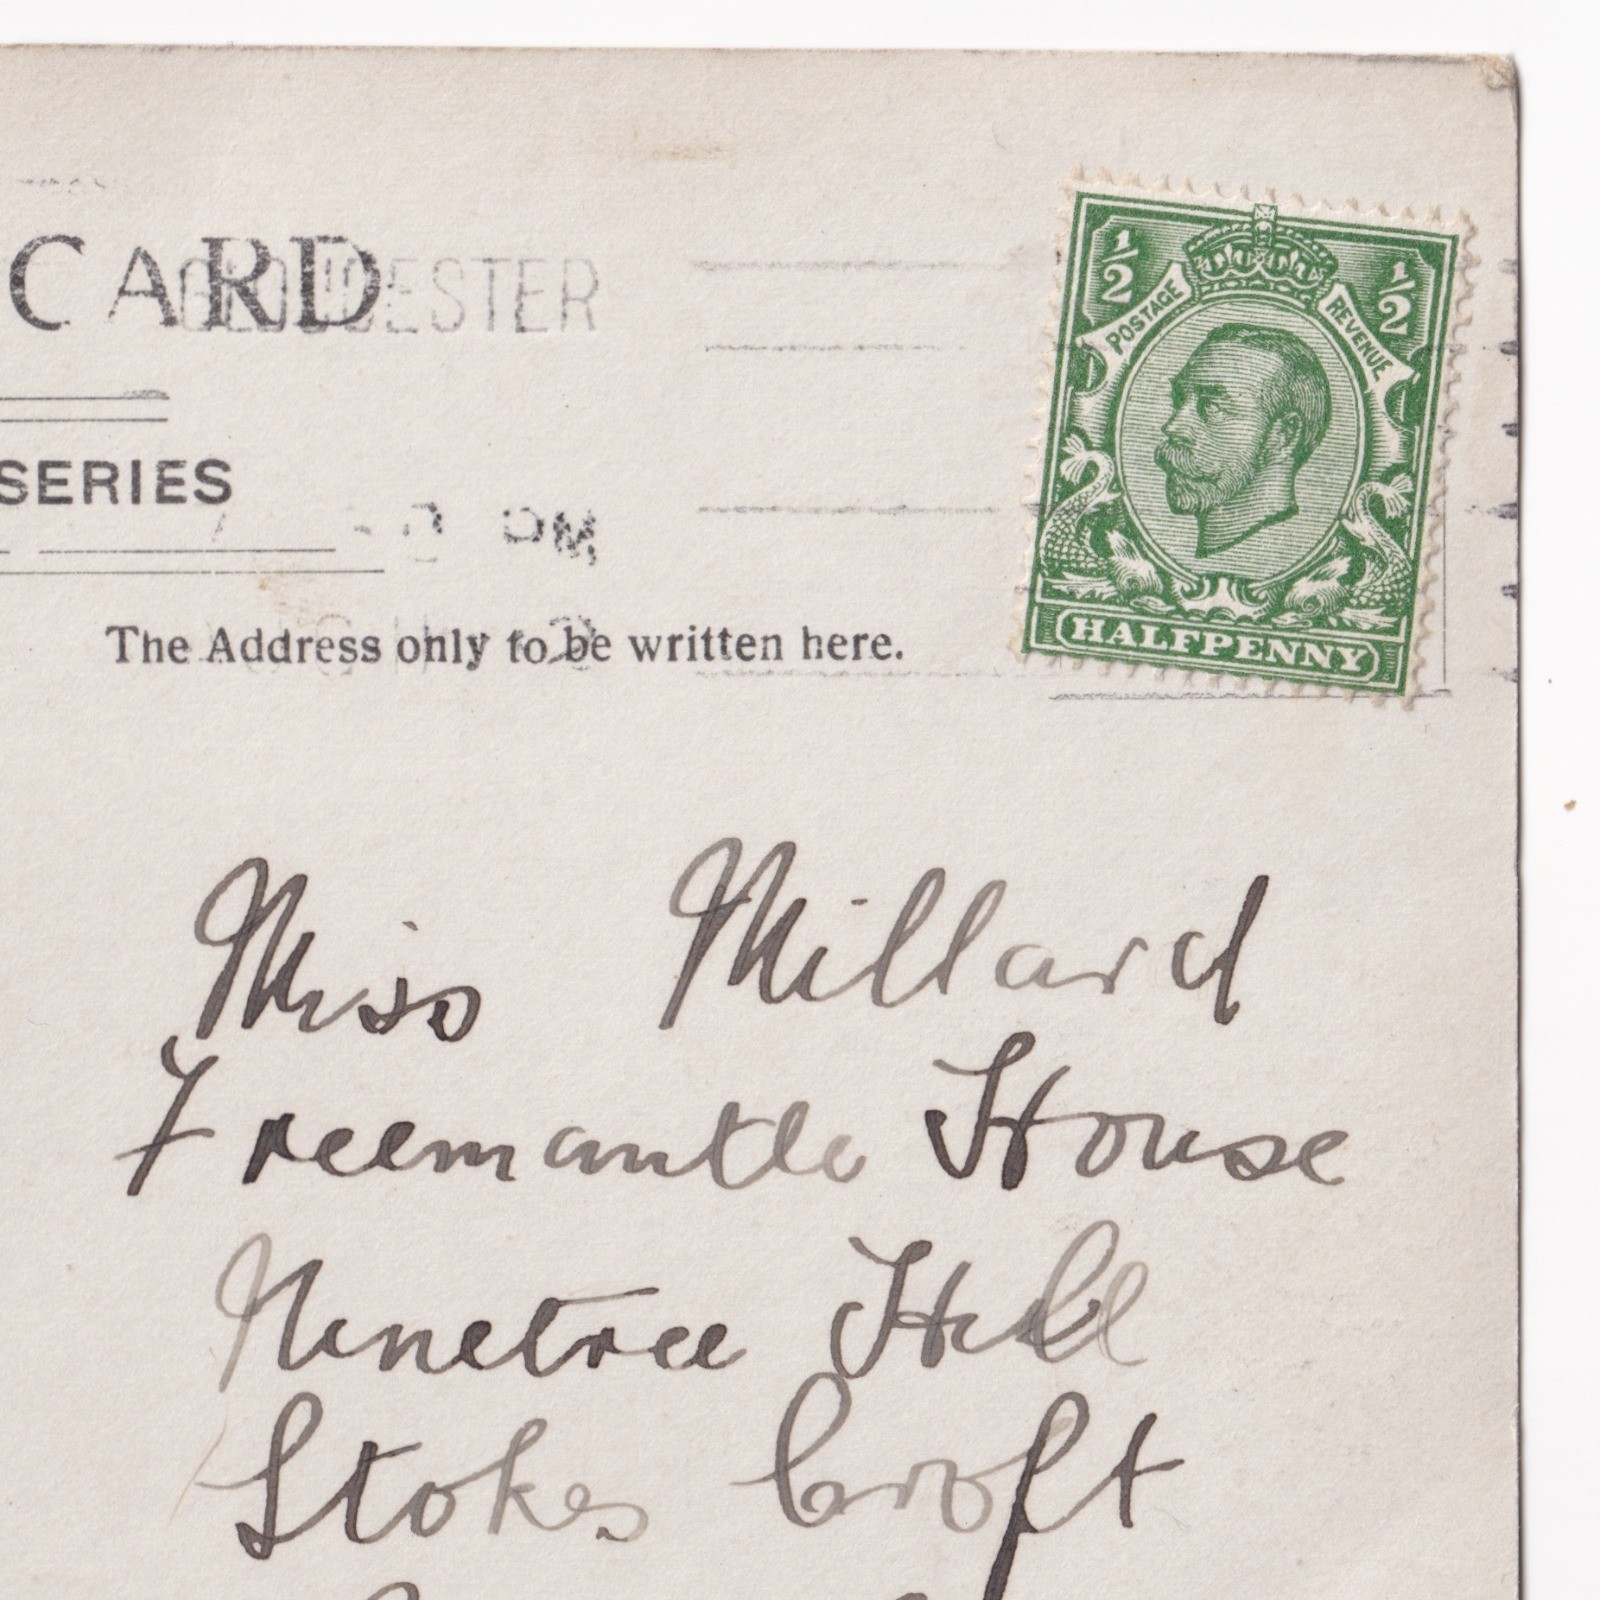 CARD
GLOUCESTER
½ ½
POSTAGE REVENUE
SERIES
PM
HALFPENNY
The Address only to be written here.
Miss Millard
Freemantle House
Ninetree Hill
Stokes Croft